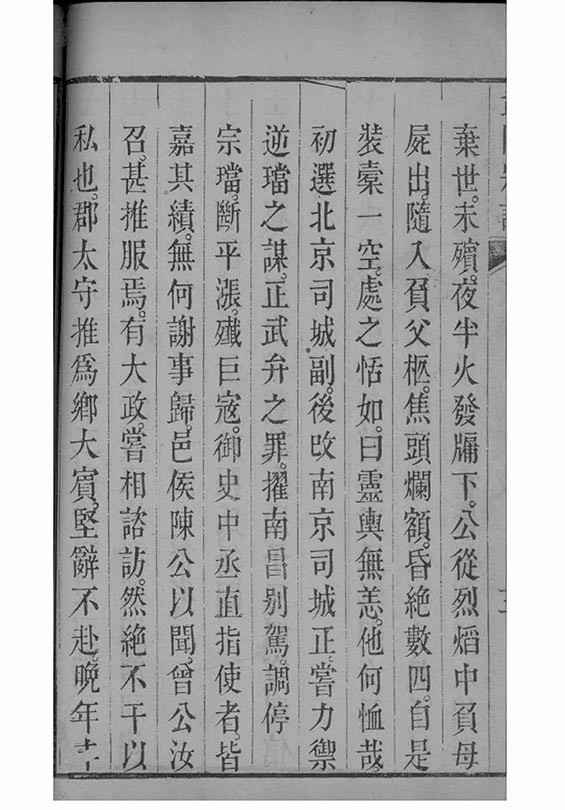 棄世。未殯。夜半火發牖下。公從烈熖中負母
屍出。隨入負父柩。焦頭爛額。昏絶數四。自是
裝槖一空。處之恬如。曰靈輿無恙。他何恤哉。
初選北京司城副。後改南京司城正。嘗力禦
逆璫之謀。正武弁之罪。擢南昌别駕。調停
宗璫。斷平漲。殲巨寇。御史中丞直指使者。皆
嘉其績。無何謝事歸。邑侯陳公以聞。曾公汝
召。甚推服焉。有大政。嘗相諮訪。然絶不干以
私也。郡太守推爲鄉大賓。堅辭不赴。晚年